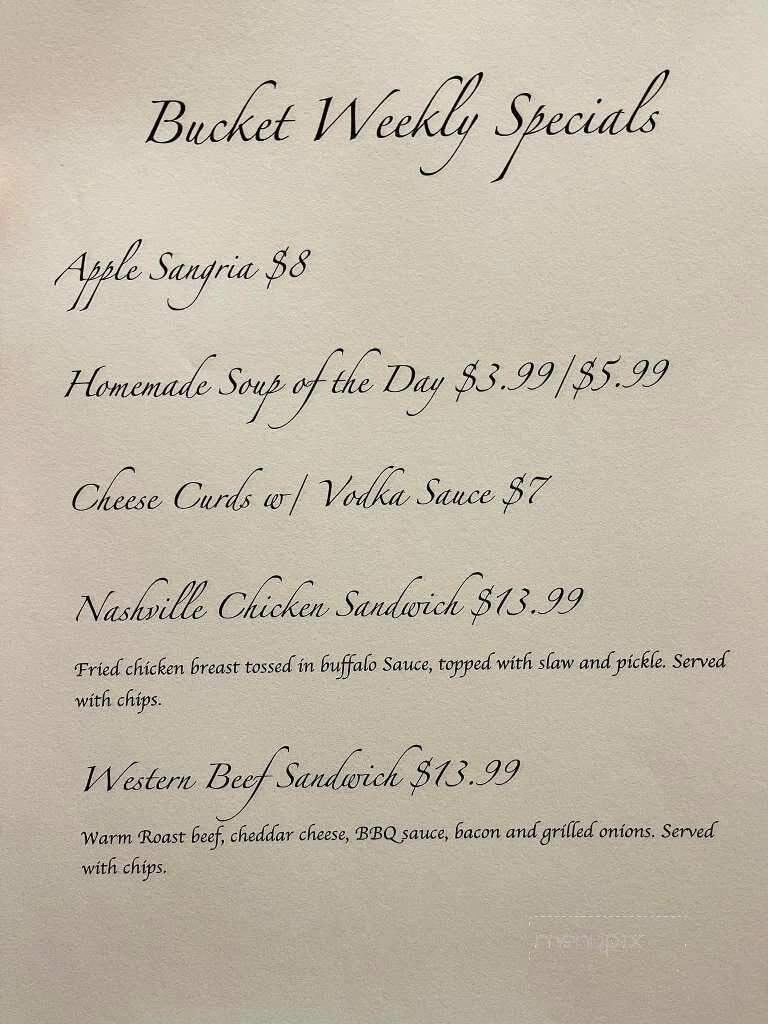 Bucket Weekly Specials
Apple Sangria $8
Homemade Soup of the Day $3.99/$5.99
Cheese Curds w/ Vodka Sauce $7
Nashville Chicken Sandwich $13.99
Fried chicken breast tossed in buffalo Sauce, topped with slaw and pickle. Served
with chips.
Western Beef Sandwich $13.99
Warm Roast beef, cheddar cheese, BBQ sauce, bacon and grilled onions. Served
with chips.
menupix